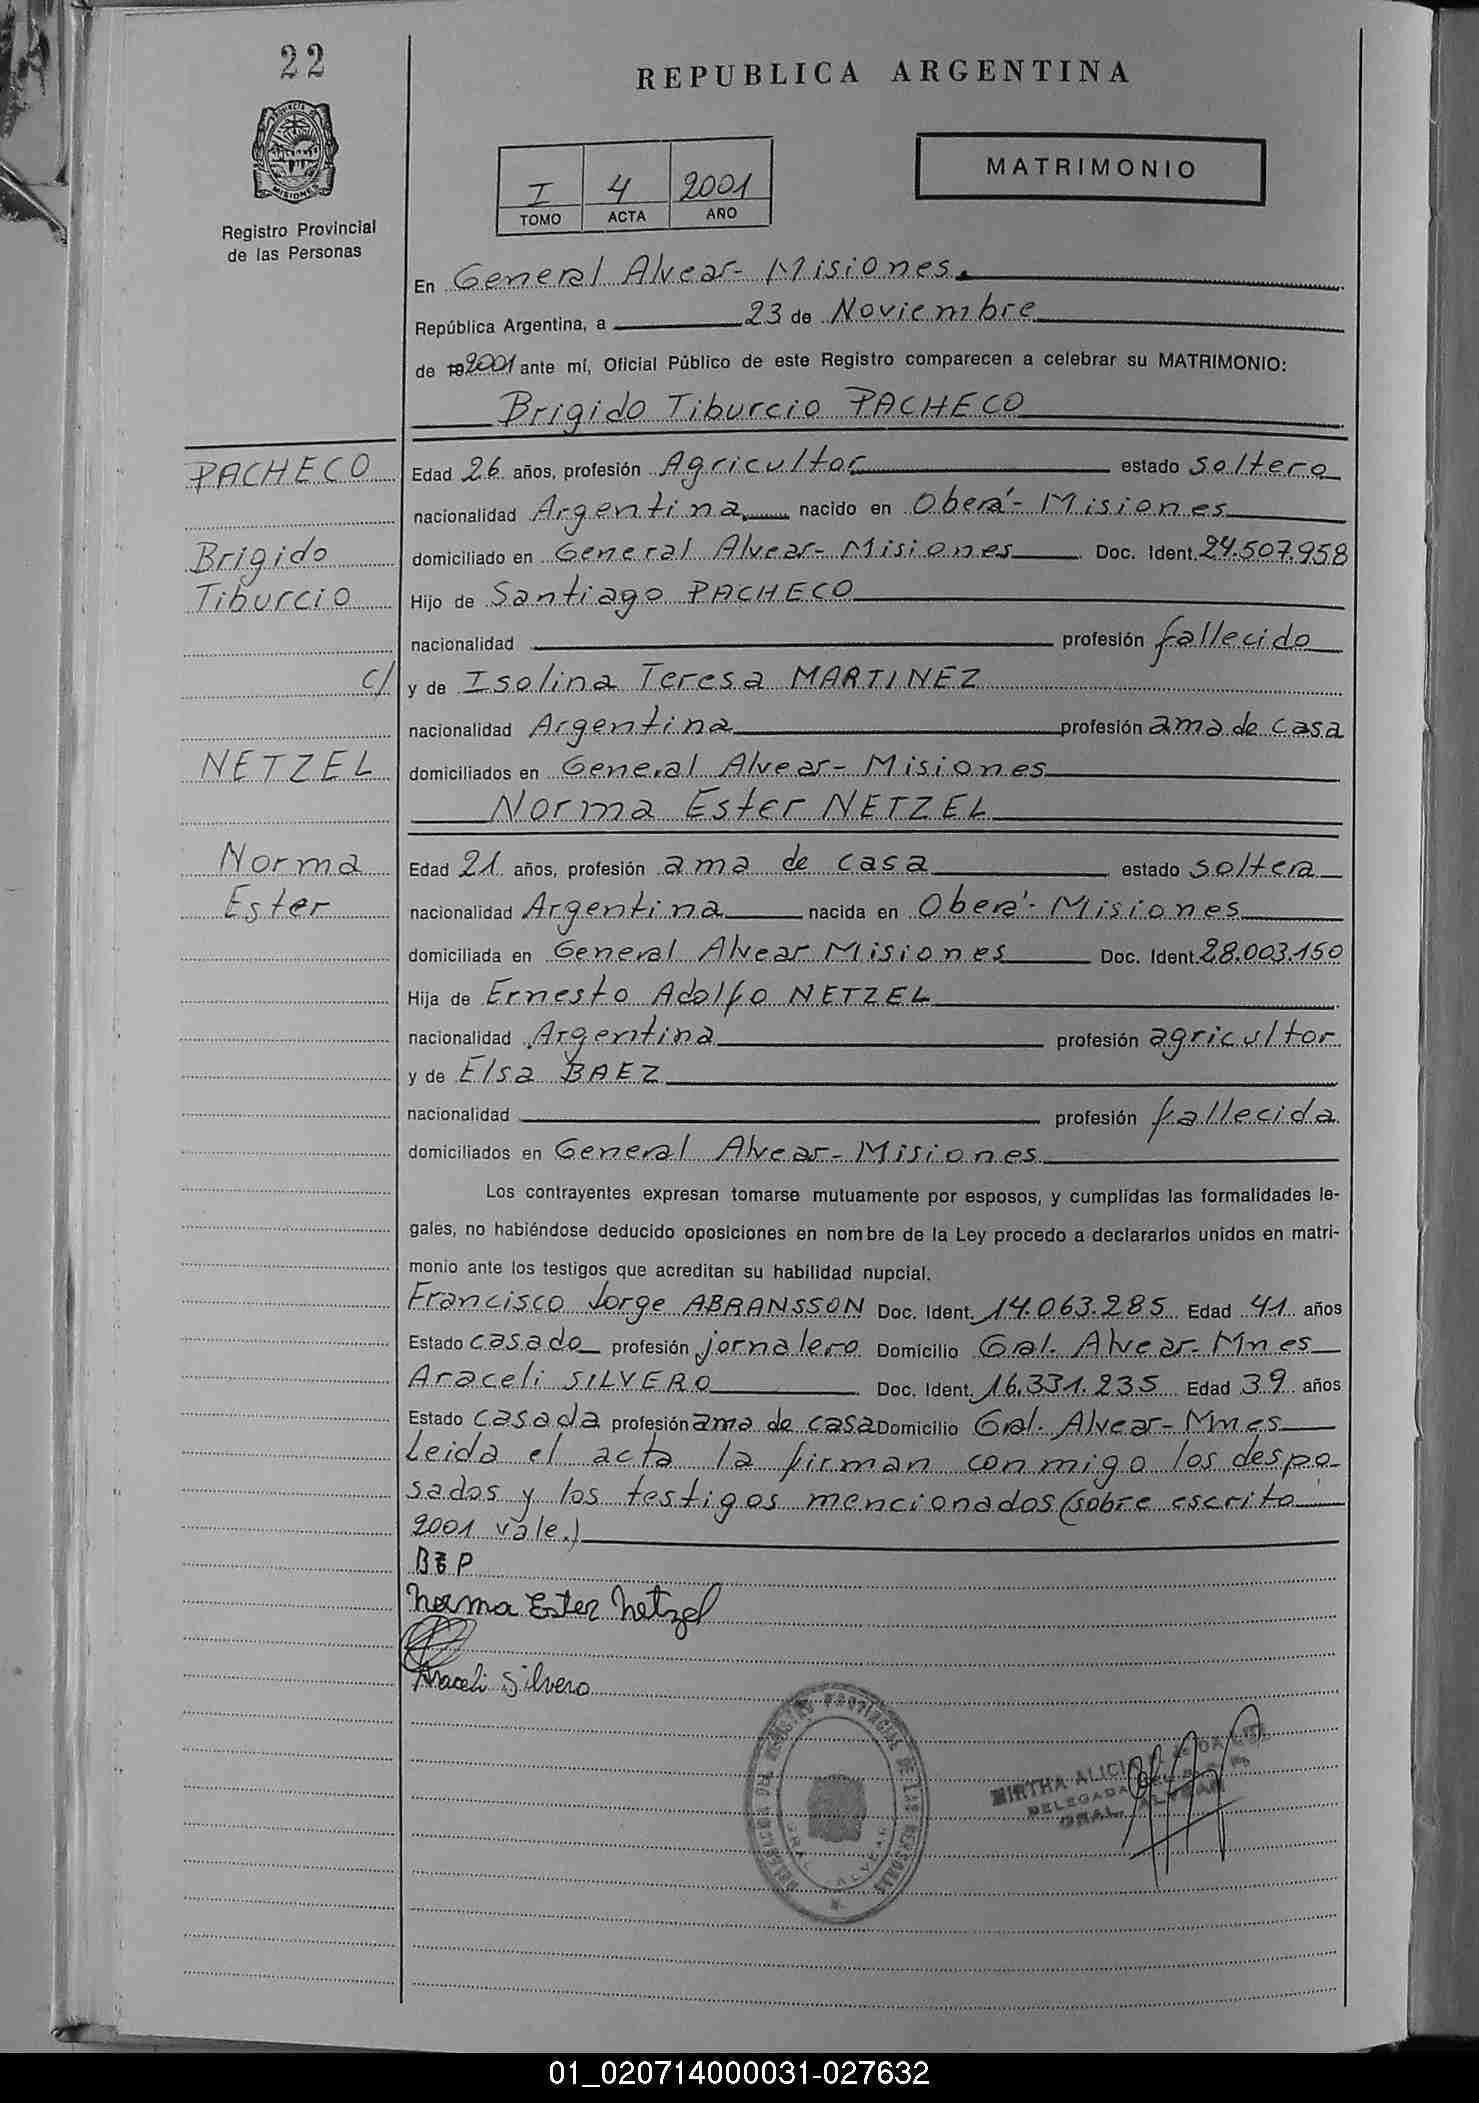 22
REPUBLICA ARGENTINA
PROVINCIA DE
MISIONES
Registro Provincial
de las Personas
I 4 2001
TOMO ACTA AÑO
MATRIMONIO
En General Alvear - Misiones.
República Argentina, a 23 de Noviembre
de 192001 ante mí, Oficial Público de este Registro comparecen a celebrar su MATRIMONIO:
Brigido Tiburcio PACHECO
PACHECO
Brigido
Tiburcio
c/
NETZEL
Norma
Ester
Edad 26 años, profesión Agricultor estado soltero
nacionalidad Argentina nacido en Oberá - Misiones
domiciliado en General Alvear - Misiones Doc. Ident. 24.507.958
Hijo de Santiago PACHECO
nacionalidad profesión fallecido
y de Isolina Teresa MARTINEZ
nacionalidad Argentina profesión ama de casa
domiciliados en General Alvear - Misiones
Norma Ester NETZEL
Edad 21 años, profesión ama de casa estado soltera
nacionalidad Argentina nacida en Oberá - Misiones
domiciliada en General Alvear Misiones Doc. Ident. 28.003.150
Hija de Ernesto Adolfo NETZEL
nacionalidad Argentina profesión agricultor
y de Elsa BAEZ
nacionalidad profesión fallecida
domiciliados en General Alvear - Misiones
Los contrayentes expresan tomarse mutuamente por esposos, y cumplidas las formalidades le-
gales, no habiéndose deducido oposiciones en nombre de la Ley procedo a declararlos unidos en matri-
monio ante los testigos que acreditan su habilidad nupcial.
Francisco Jorge ABRANSSON Doc. Ident. 14.063.285 Edad 41 años
Estado casado profesión jornalero Domicilio Gral. Alvear - Mnes
Araceli SILVERO Doc. Ident. 16.331.235 Edad 39 años
Estado casada profesión ama de casa Domicilio Gral. Alvear - Mnes
Leida el acta la firman conmigo los despo-
sados y los testigos mencionados (sobre escrito
2001 vale.)
B T P
Norma Ester Netzel
Araceli Silvero
DELEGACION DEL REGISTRO PROVINCIAL DE LAS PERSONAS
GRAL. ALVEAR
MIRTHA ALICI
DELEGADA
GRAL. ALVEAR
01_020714000031-027632